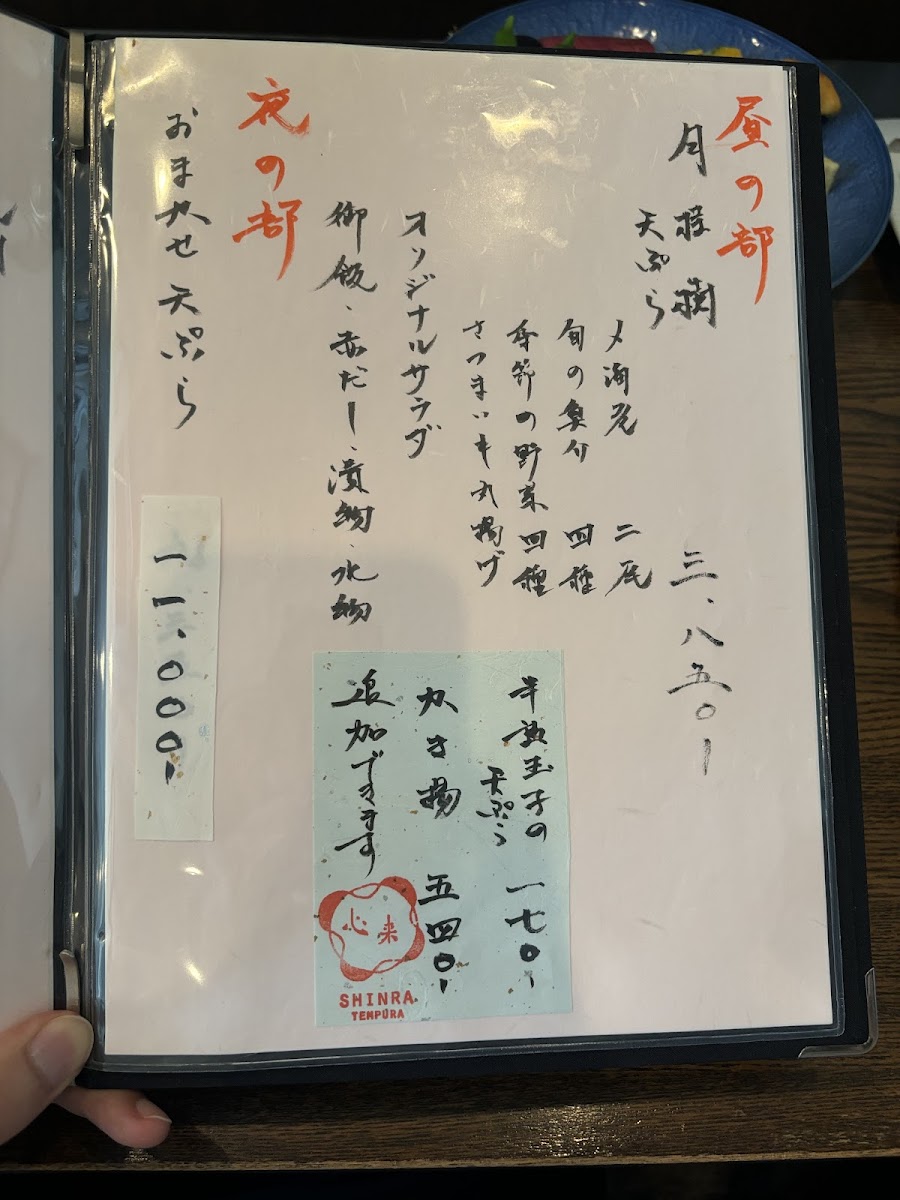 昼の部
月桂樹 三、八五〇ー
天ぷら
〆海老 二尾
旬の魚介 四種
季節の野菜 四種
さつまいも丸揚げ
オリジナルサラダ
御飯、赤だし、漬物、水物
半熟玉子の
天ぷら
一七〇、
かき揚 五四〇、
追加できます
心来
SHINRA.
TEMPURA
夜の部
おまかせ天ぷら 一一、〇〇〇、